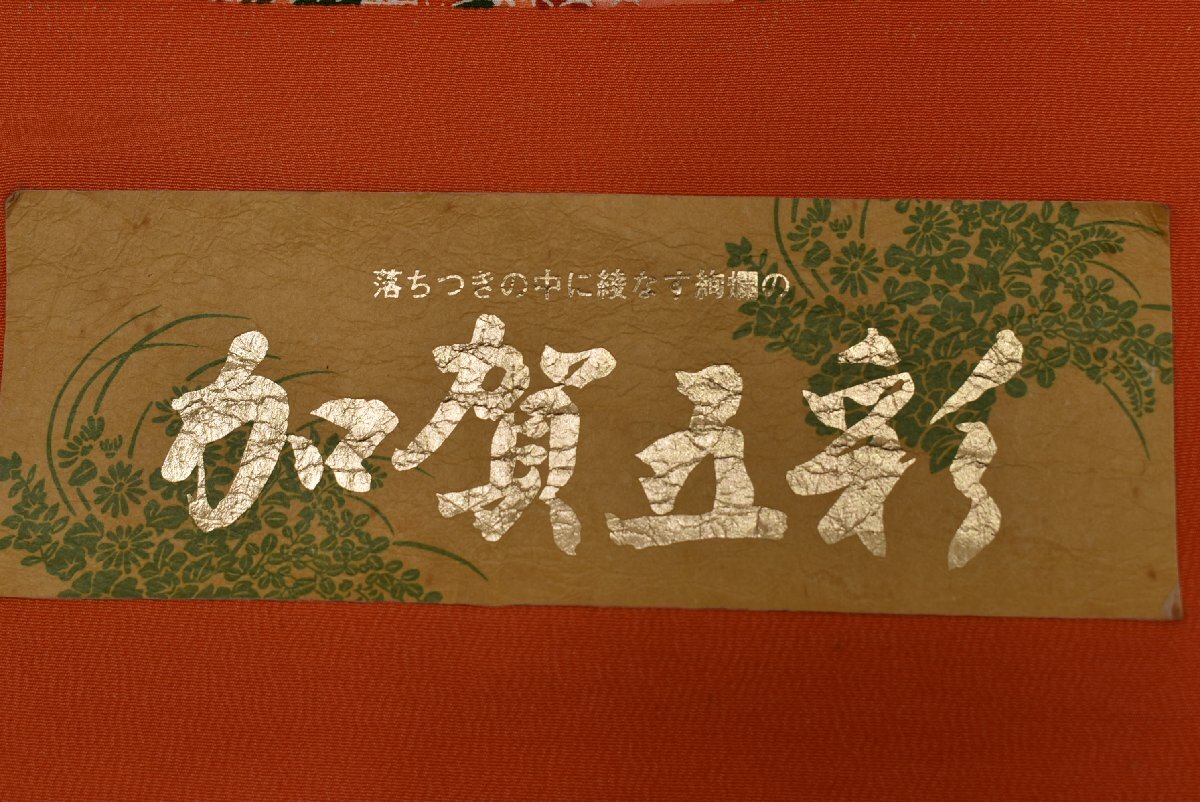 落ちつきの中に綾なす絢爛の
加賀五彩